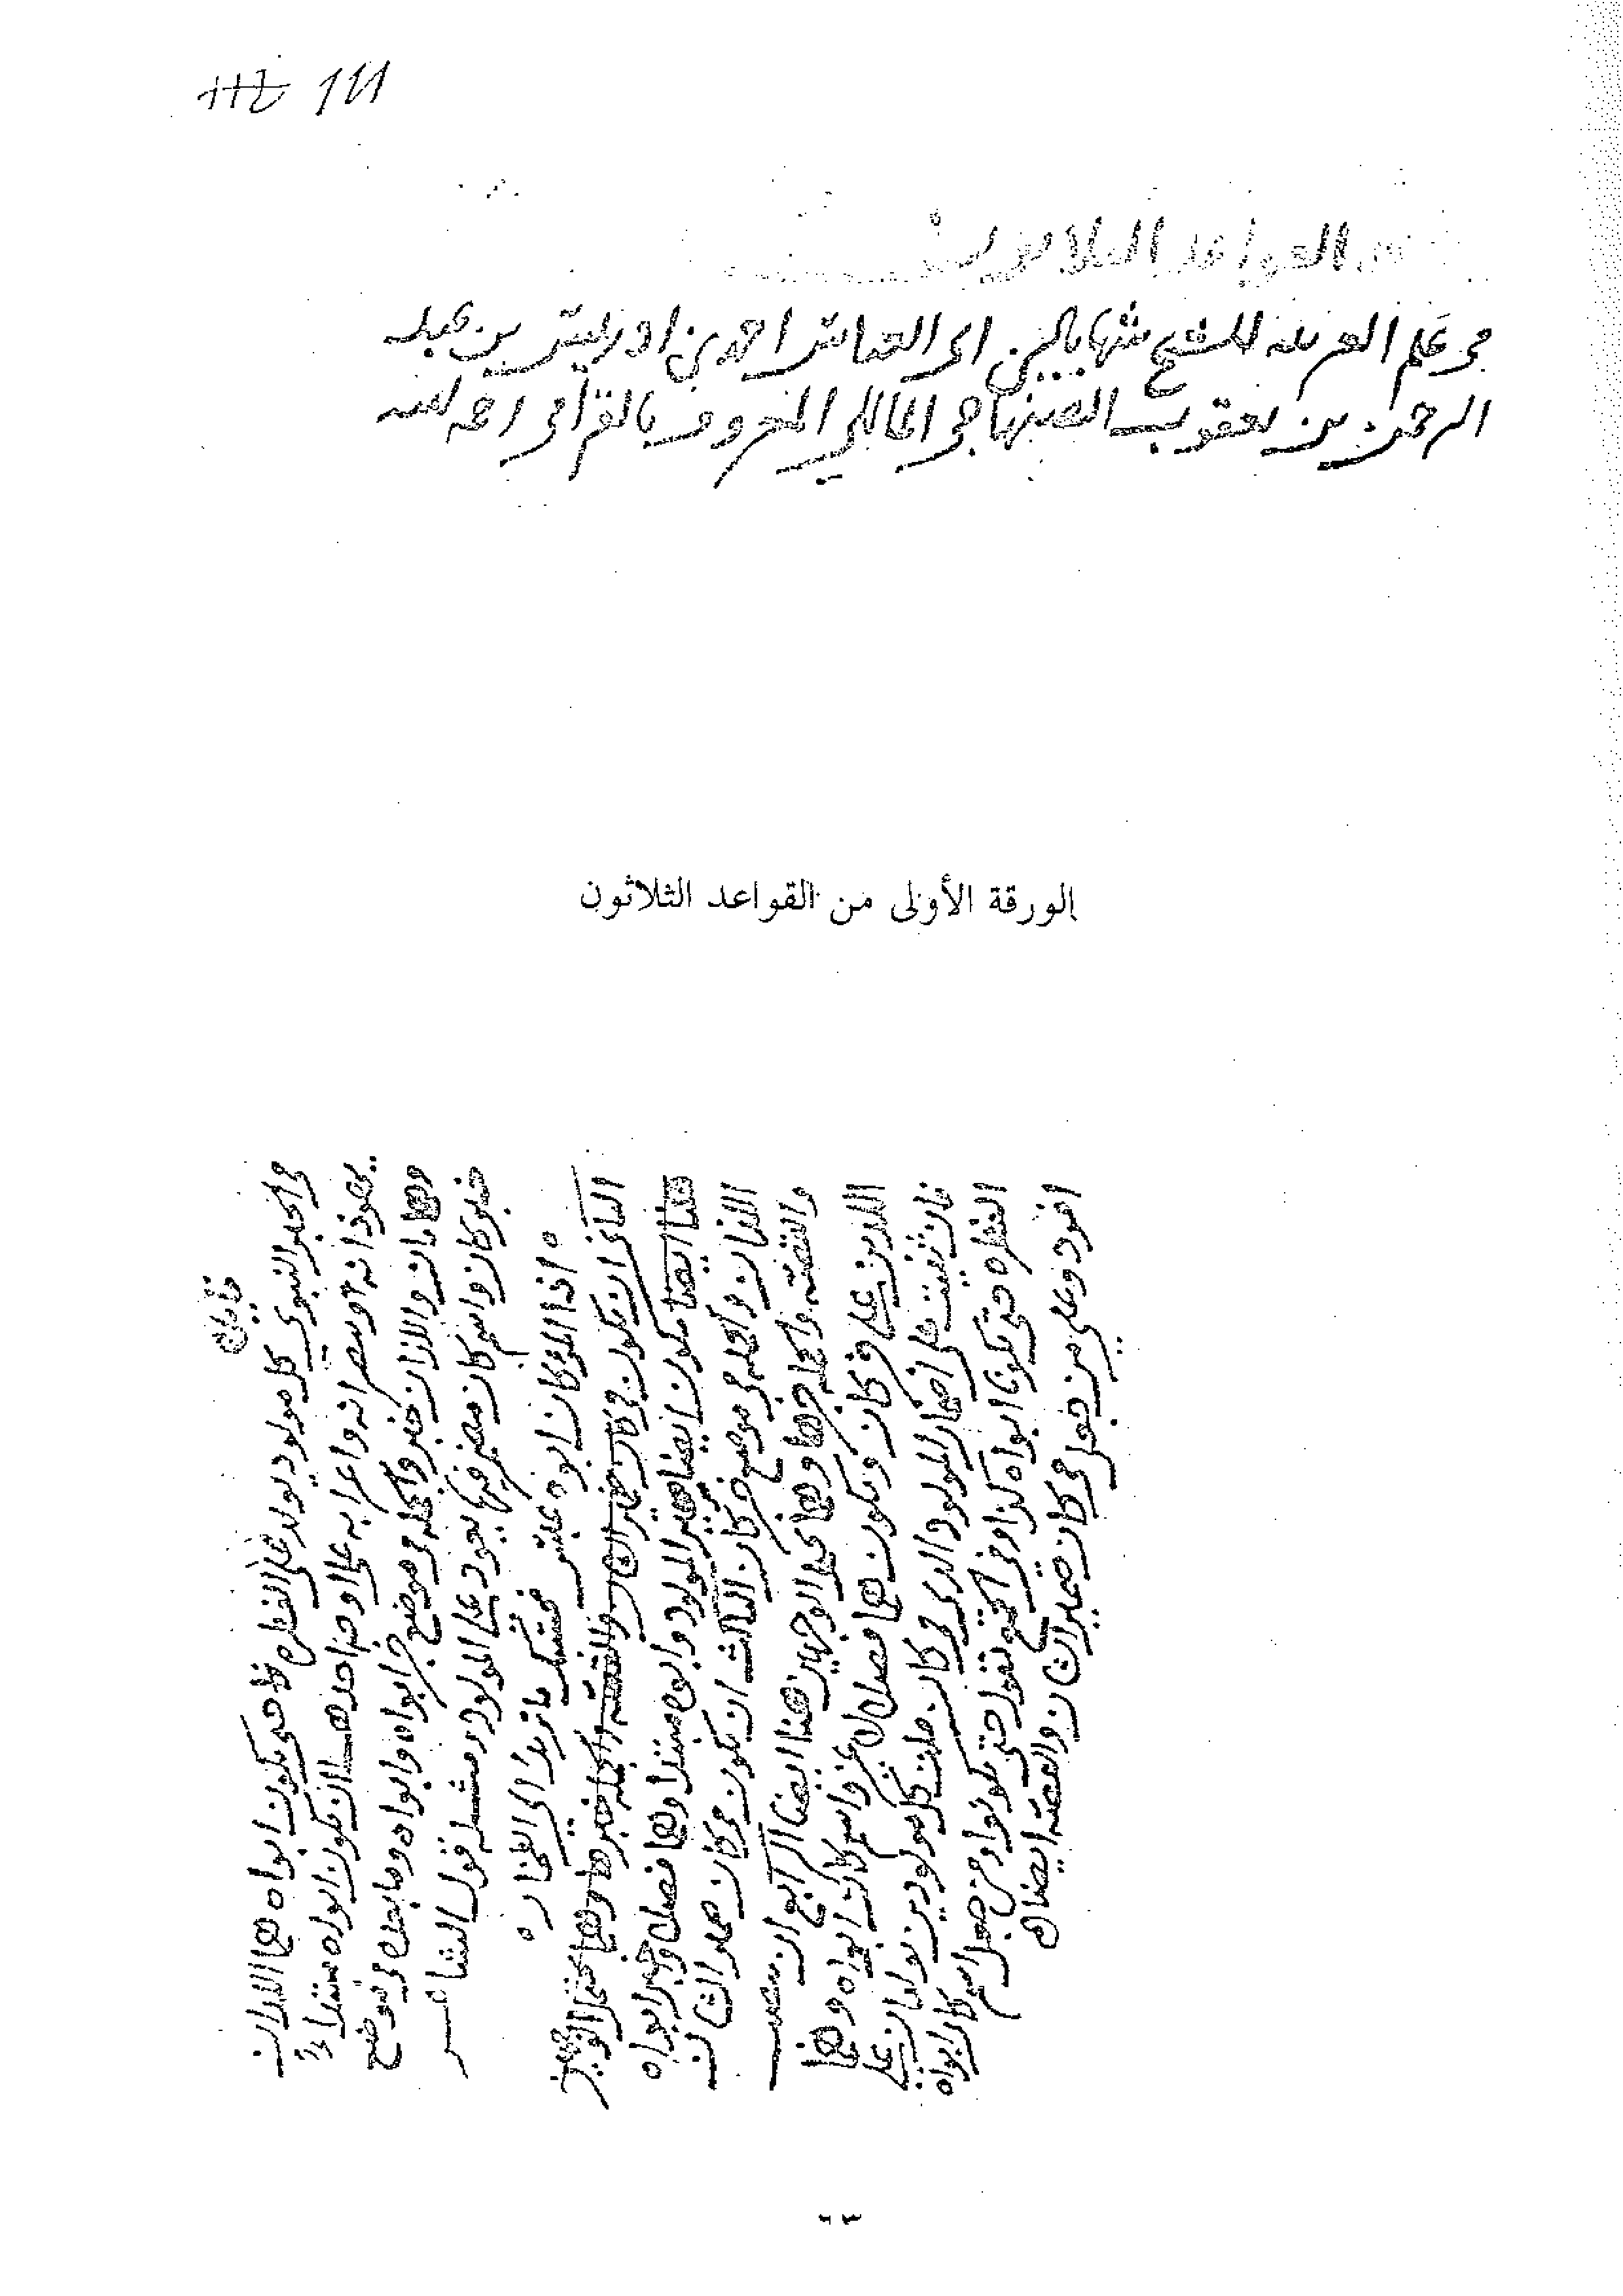 ١١١
القواعد الثلاثون
في علم العربيه للشيخ شهاب الدين ابي العباس احمد بن ادريس بن عبد
الرحمن بن يعقوب الصنهاجي المالكي المعروف بالقرافي رحمه الله
الورقة الأولى من القواعد الثلاثون
فايده
في الخبر النبوي كل مولود يولد على الفطره حتى يكون ابواه هما اللذان
يهودانه او ينصرانه واعرابه على اوجه احدها ان يكون ابواه مبتدا
وهما ثان واللذان خبره والجمله في موضع خبر ابواه وابواه وما بعده في موضع
خبر كان واسم كان مضمر فيها يعود على المولود ومثله قول الشاعر
اذا المرء كان ابوه عبس فحسبك ما تريد الى الفخار
الثاني ان يكون في كان ضمير الشان والقصه والجمله خبرها وهما يحتمل الوجهين
هنا ايضا يكون ايضا ضمير المولود وابواه مبتدا وهما فصل وخبر ابواه
اللذان والجمله في موضع خبر كان الثالث ان يكون في كان ضمير الشان
والقصه والجمله خبرها وهما يحتمل الوجهين هنا ايضا الرابع ان ينصب
اللذين على خبر كان ويكون هما فصل واسم كان ابواه وهما
فان ثنيت على اضمار المولود الذي في كان قلت كل مولودين يولدان على
الفطره حتى يكونا ابواه كذا وفي الجمع تقول حتى يكونوا ومن جعل اسم كان ابواه
افرد وعلى من جعل في كان ضمير الشان والقصه ايضا
٤٤